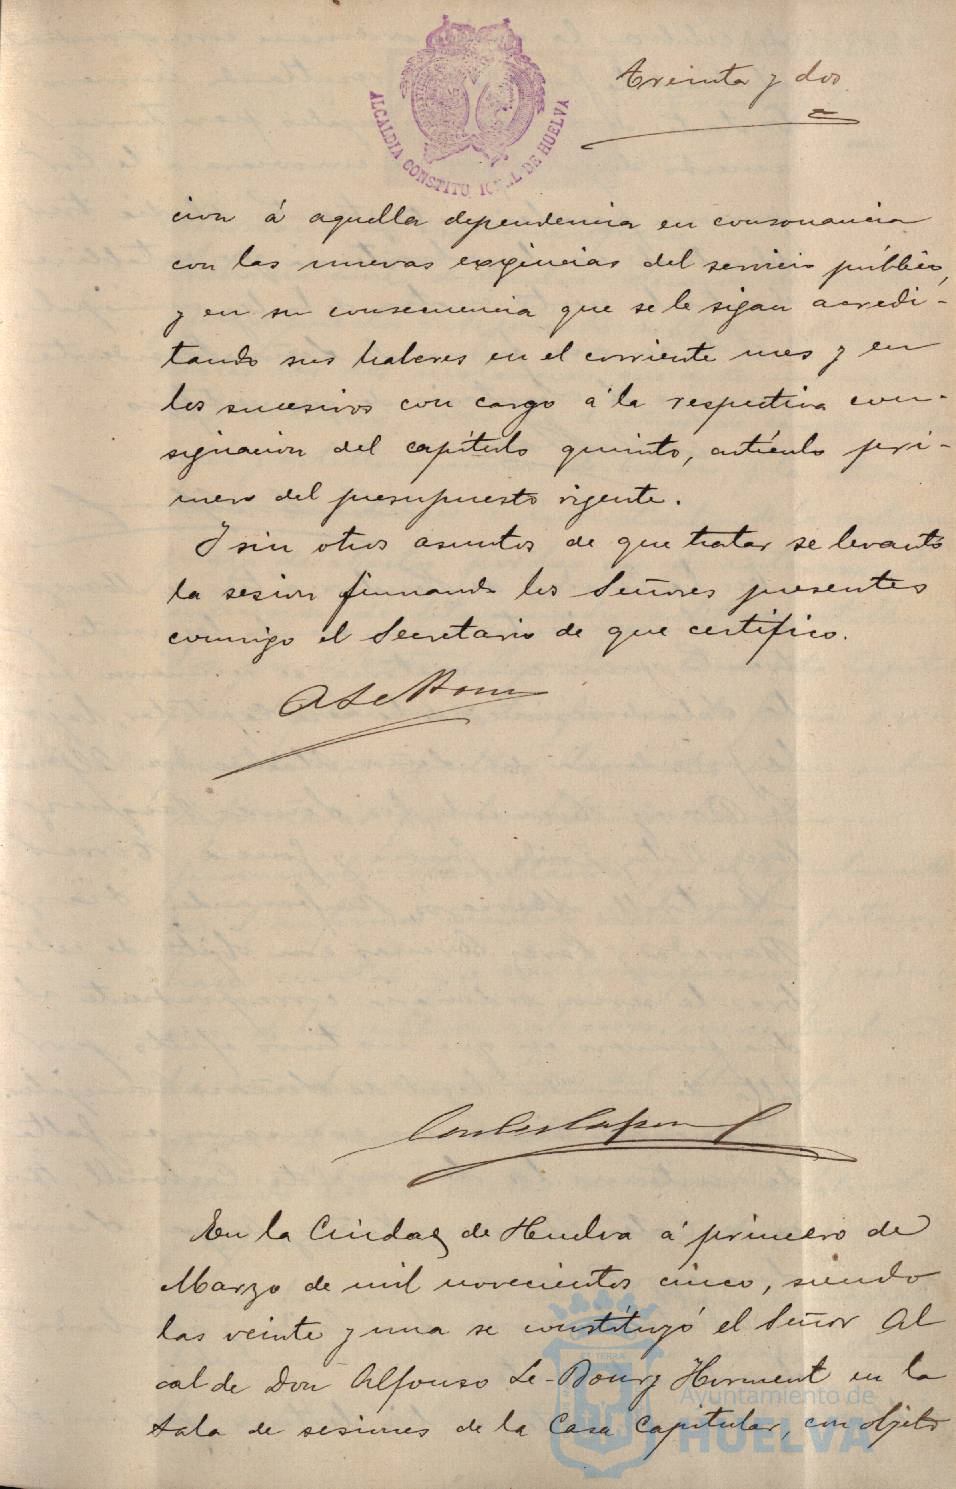 Treinta y dos
ALCALDIA CONSTITU I L DE HUELVA
cion á aquella dependencia en consonancia
con las nuevas exigencias del servicio público,
y en su consecuencia que se le sigan acredi-
tando sus haberes en el corriente mes y en
los sucesivos con cargo á la respectiva con-
signacion del capítulo quinto, artículo pri-
mero del presupuesto vigente.
Y sin otros asuntos de que tratar se levantó
la sesion firmando los Señores presentes
conmigo el Secretario de que certifico.
A Le Bourg
En la Ciudad de Huelva á primero de
Marzo de mil novecientos cinco, siendo
las veinte y una se constituyó el Señor Al
calde Don Alfonso Le-Bourg Herment en la
Sala de sesiones de la Casa Capitular, con objeto
Ayuntamiento de
HUELVA